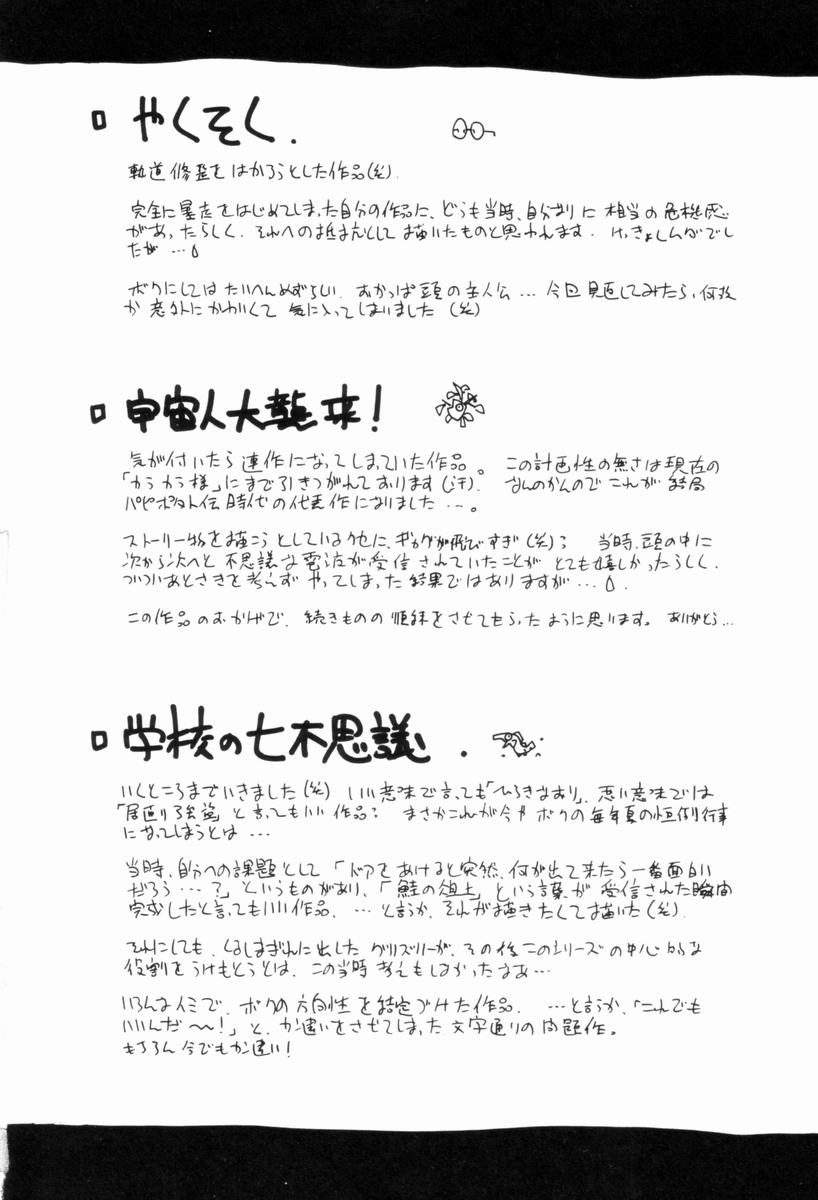 やくそく.
軌道修整をはかろうとした作品(笑).
完全に暴走をはじめてしまった自分の作品に、どうも当時、自分なりに相当の危機感
があったらしく、それへの抵抗として描いたものと思われます. けっきょくムダでし
たが…
ボクにしてはたいへんめずらしい、おかっぱ頭の主人公… 今回見直してみたら、何故
か意外にかわいくて気に入ってしまいました(笑)
宇宙人大襲来!
気が付いたら連作になってしまっていた作品。この計画性の無さは現在の
「カラカラ様」にまで引きつがれております(汗). なんのかんので これが結局
外伝時代の代表作になりました…。
ストーリー物を描こうとしているクセに、ギャグが飛びすぎ(笑)? 当時、頭の中に
次から次へと不思議な電波が受信されていたことがとても嬉しかったらしく、
ついついあとさきを考えずやってしまった結果ではありますが…
この作品のおかげで、続きものの練習をさせてもらったように思います。ありがとう…
学校の七不思議.
いくところまでいきました(笑) いい意味で言っても「ひらきなおり」、悪い意味では
「居直り強盗」と言ってもいい作品? まさかこれが今やボクの毎年夏の恒例行事
になってしまうとは…
当時、自分への課題として「ドアをあけると突然、何が出て来たら一番面白い
だろう…?」というものがあり、「鮭の遡上」という言葉が受信された瞬間
完成したと言ってもいい作品. …と言うか、それが描きたくて描いた(笑).
それにしても、くるしまぎれに出したグリズリーが、その後このシリーズの中心的な
役割をうけもとうとは、この当時考えもしなかったなあ…
いろんなイミで、ボクの方向性を決定づけた作品. …と言うか、「これでも
いいんだ〜!」と、カン違いをさせてしまった文字通りの問題作。
もちろん今でもカン違い!